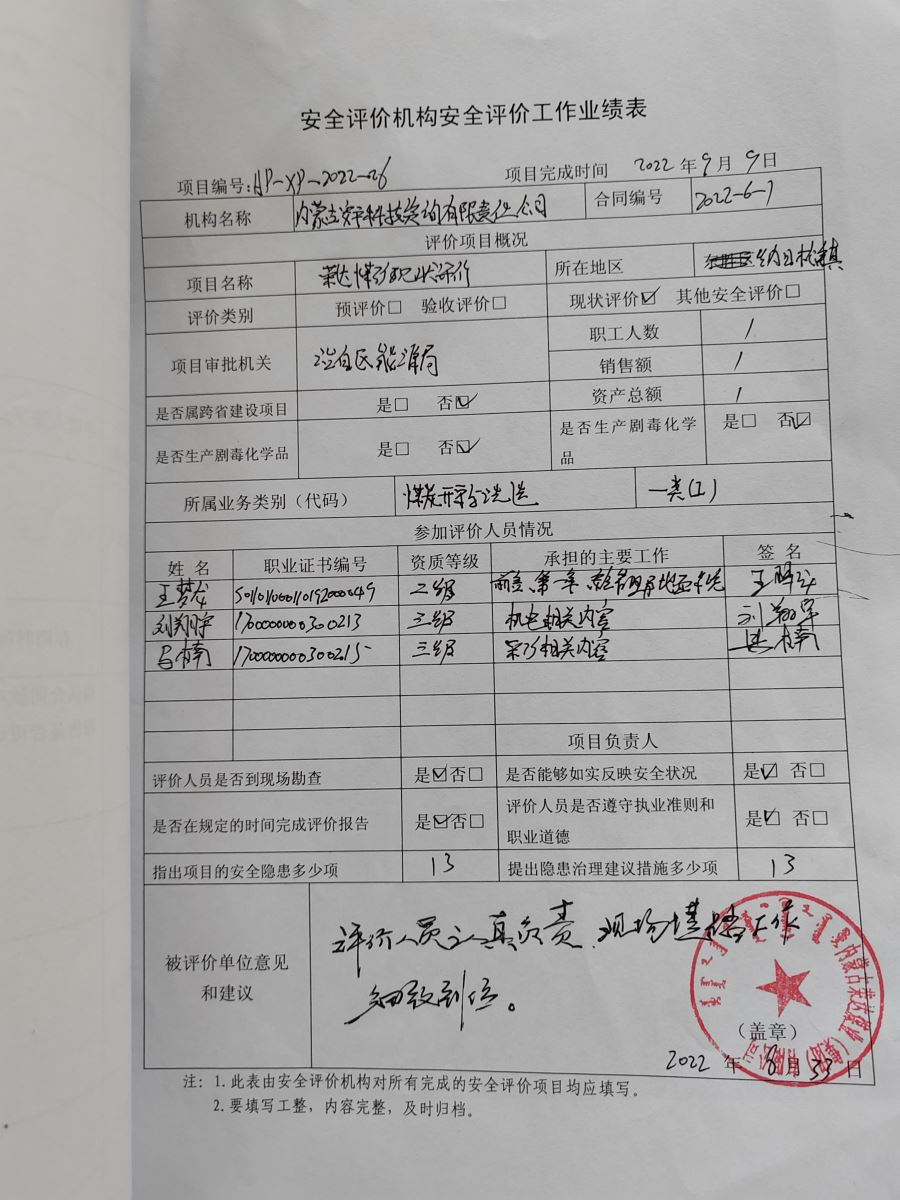 安全评价机构安全评价工作业绩表
项目编号:AP-XP-2022-026 项目完成时间 2022年9月9日
机构名称 内蒙古安平科技咨询有限责任公司 合同编号 2022-6-7
评价项目概况
项目名称 荣达煤矿现状评价 所在地区 纳日松镇
评价类别 预评价□ 验收评价□ 现状评价☑ 其他安全评价□
项目审批机关 自治区能源局 职工人数 /
销售额 /
资产总额 /
是否属跨省建设项目 是□ 否☑
是否生产剧毒化学品 是□ 否☑ 是否生产剧毒化学品 是□ 否☑
所属业务类别（代码） 煤炭开采与洗选 一类(1)
参加评价人员情况
姓名 职业证书编号 资质等级 承担的主要工作 签名
王梦龙 S011011000110192000049 二级 前言、第一章
刘翔宇 1700000000300213 三级 机电相关内容 刘翔宇
马楠 1700000000300215 三级 采矿相关内容 马楠
项目负责人
评价人员是否到现场勘查 是☑否□ 是否能够如实反映安全状况 是☑ 否□
是否在规定的时间完成评价报告 是☑否□ 评价人员是否遵守执业准则和职业道德 是☑ 否□
指出项目的安全隐患多少项 13 提出隐患治理建议措施多少项 13
被评价单位意见和建议
评价人员认真负责,现场工作
细致到位。
（盖章）
2022年8月33日
注：1.此表由安全评价机构对所有完成的安全评价项目均应填写。
2.要填写工整，内容完整，及时归档。